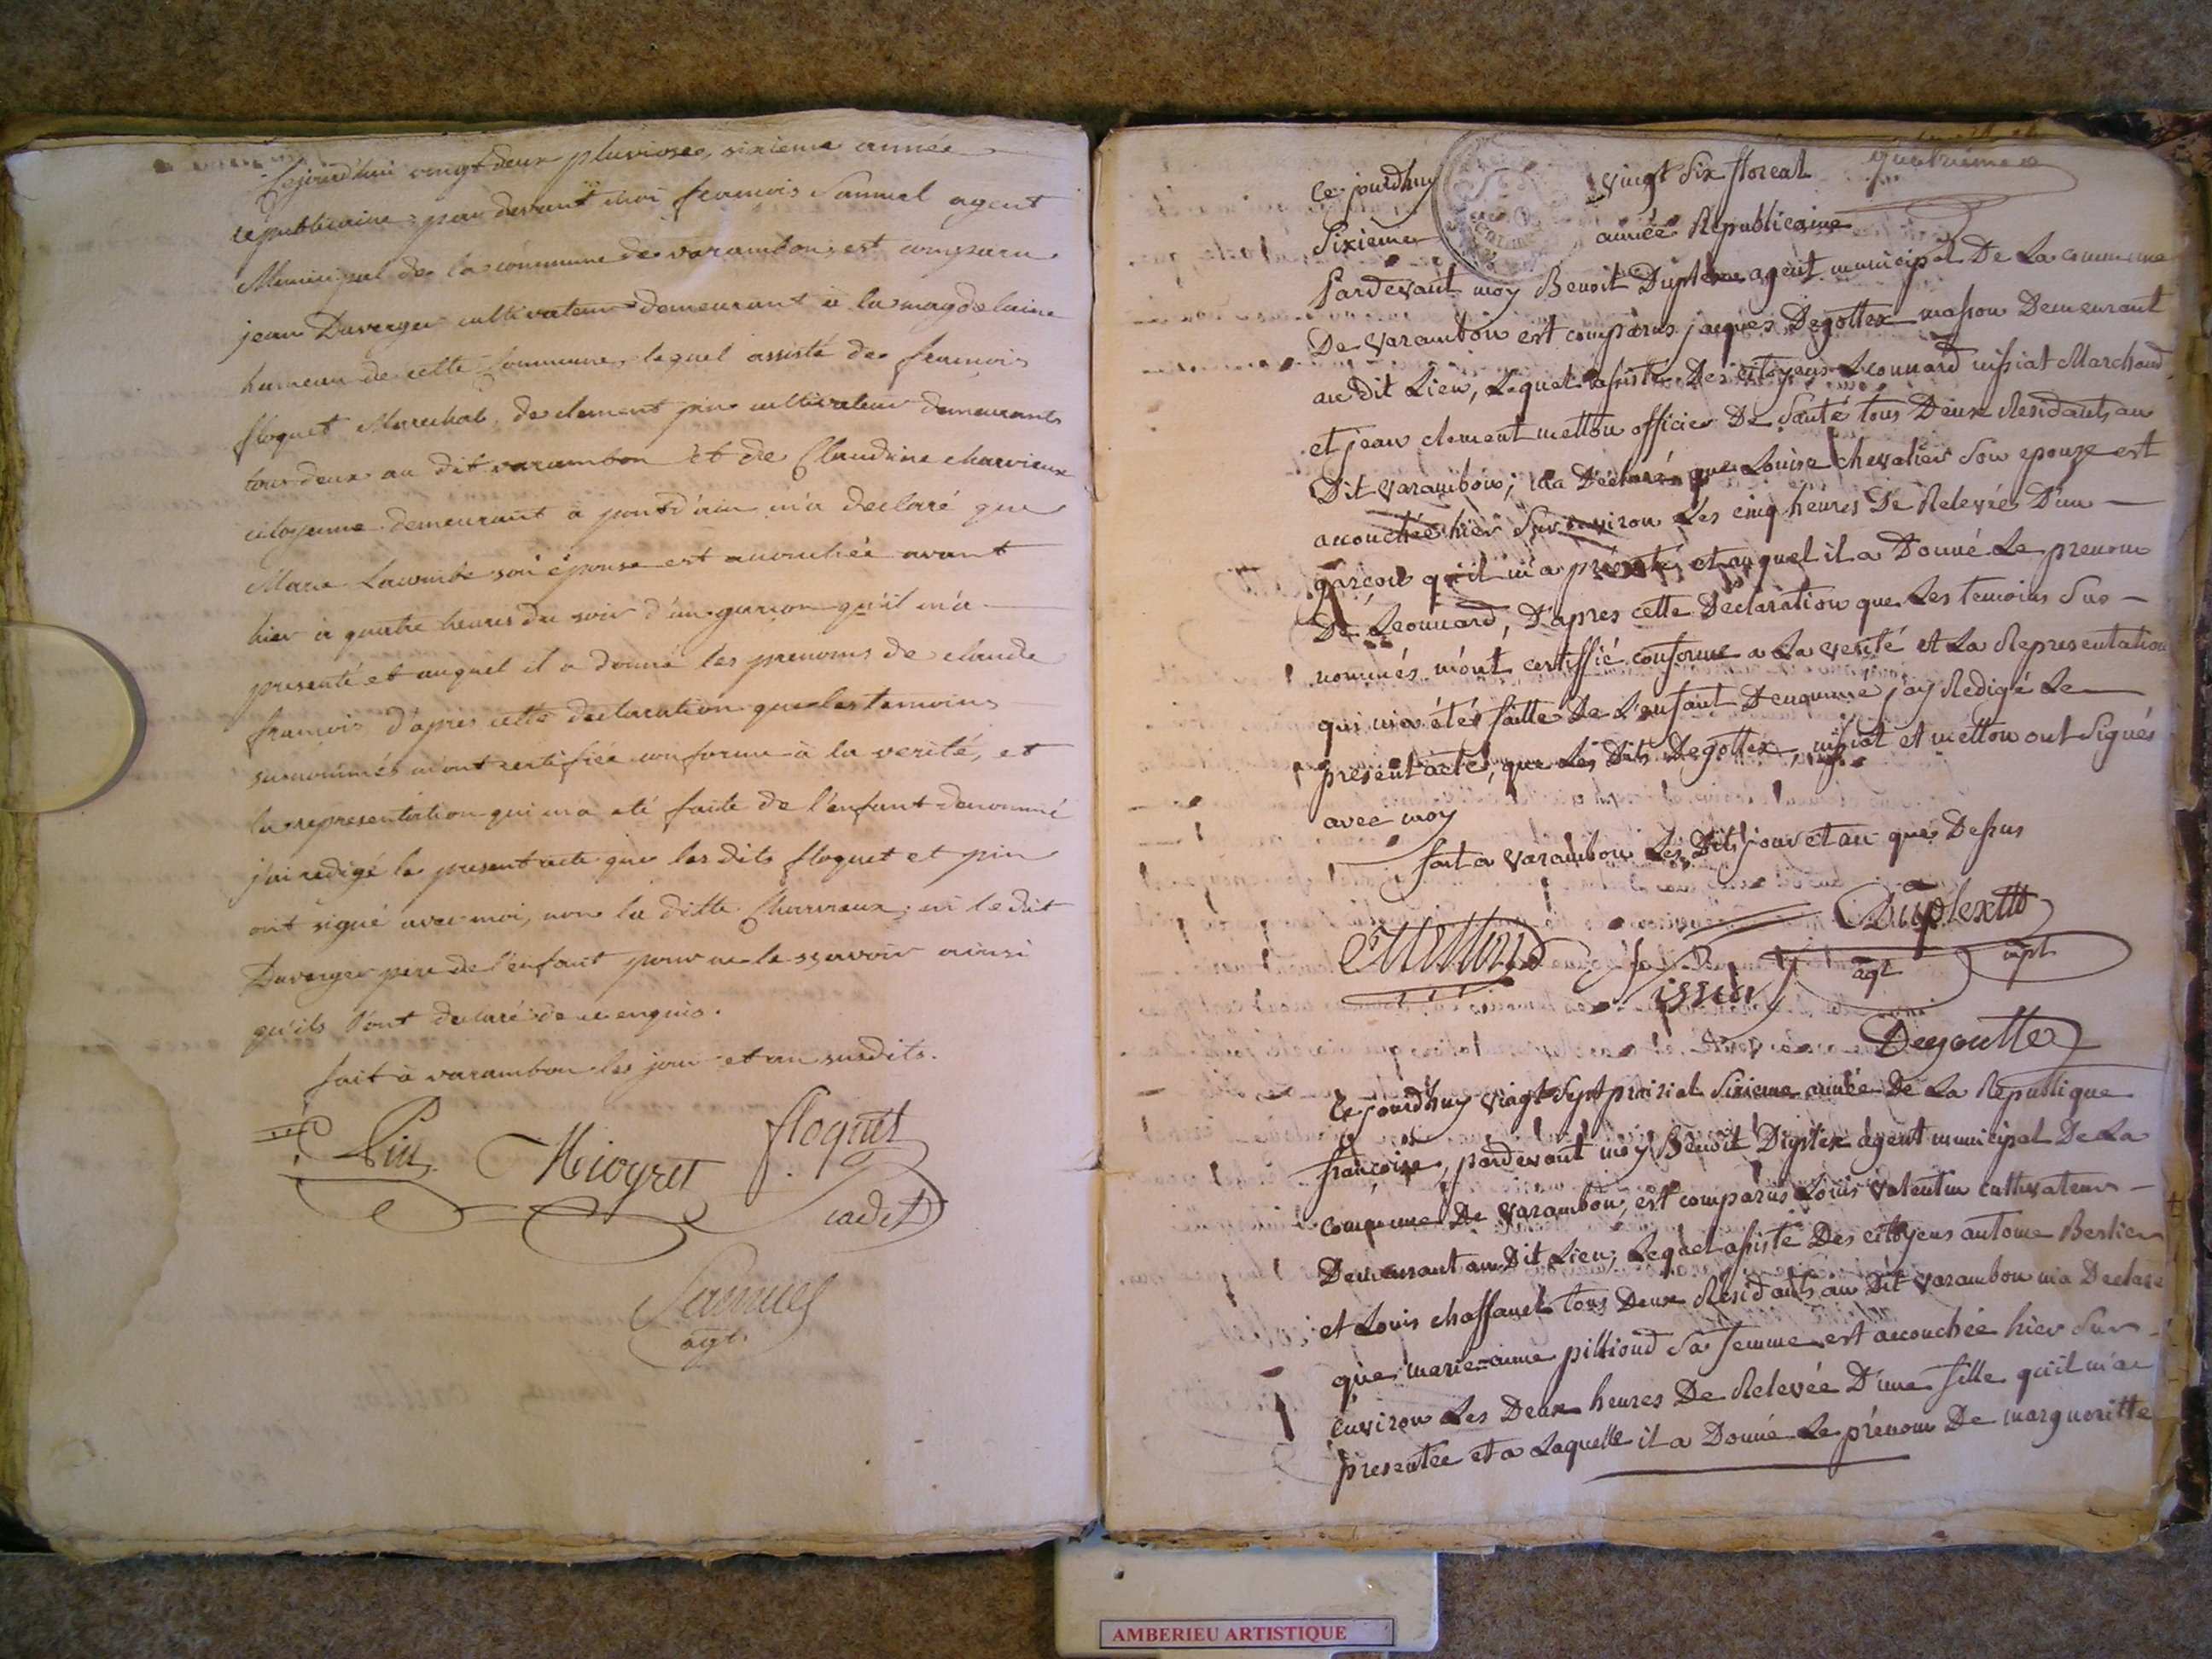 Cejourd'hui vingt deux pluviose, sixieme année
republicaine, par devant moi francois Samuel agent
Municipal de la commune de varambon, est comparu
jean Duverger cultivateur demeurant à la magdelaine
hameau de cette Commune, lequel assisté de francois
floquet Marechal, de clement pin cultivateur demeurants
tous deux au dit varambon et de Claudine charvieux
citoyenne demeurant à pont d'ain, m'a declaré que
Marie Lacombe son épouse est accouchée avant
hier à quatre heures du soir d'un garçon qu'il m'a
presenté et auquel il a donné les prenoms de claude
francois d'apres cette declaration que les temoins
surnommés m'ont certifiée conforme à la verité, et
la representation qui m'a eté faite de l'enfant denommé
j'ai redigé le present acte que les dits floquet et pin
ont signé avec moi, non la ditte Charvieux, ni le dit
Duverger pere de l'enfant pour ne le sçavoir ainsi
qu'ils l'ont declaré de ce enquis.
fait à varambon les jour et an susdits.
Pin Miogret floquet
cadet
Samuel
agt.
quatrième
Ce jourdhuy vingt Six floreal
Sixieme année Republicaine
Pardevant moy Benoit Duplex agent municipal De La commune
De varambon est comparus jacques Degottex masson Demeurant
au dit Lieu, Lequel assisté Des citoyens Leonnard missiat Marchand
et jean clement metton officier De Santé tous Deux Residants au
Dit varambon; ma Déclaré que Louise chevalier Son epouse est
accouchée hier Sur environ Les cinq heures De Relevée D'un
garçon qu'il m'a présenté et auquel il a Donné Le prenom
De Leonnard, D'apres cette Declaration que Les temoins Sus-
nommés m'ont certiffié conforme a La verité et La Representation
qui m'a étés faitte De L'enfant Denommé j'ay Redigé Le
present acte, que Les Dits Degottex, missiat et metton ont Signés
avec moy
fait a varambon Les Dits jour et an que Dessus
Metton Duplex
agt mpl
Degoutte
Ce jourdhuy vingt Sept prairial Sixieme année De La Republique
françoise, pardevant moy Benoit Duplex agent municipal De La
commune De varambon, est comparus Louis valentin cultivateur
Demeurant au Dit Lieu, Lequel assisté Des citoyens antoine Berlier
et Louis chassanel tous Deux Residants au Dit varambon m'a Declaré
que marie-anne pillioud Sa femme est accouchée hier Sur
environ Les Deux heures De Relevée D'une fille qu'il m'a
presentée et a Laquelle il a Donné Le prénom De margueritte
AMBERIEU ARTISTIQUE